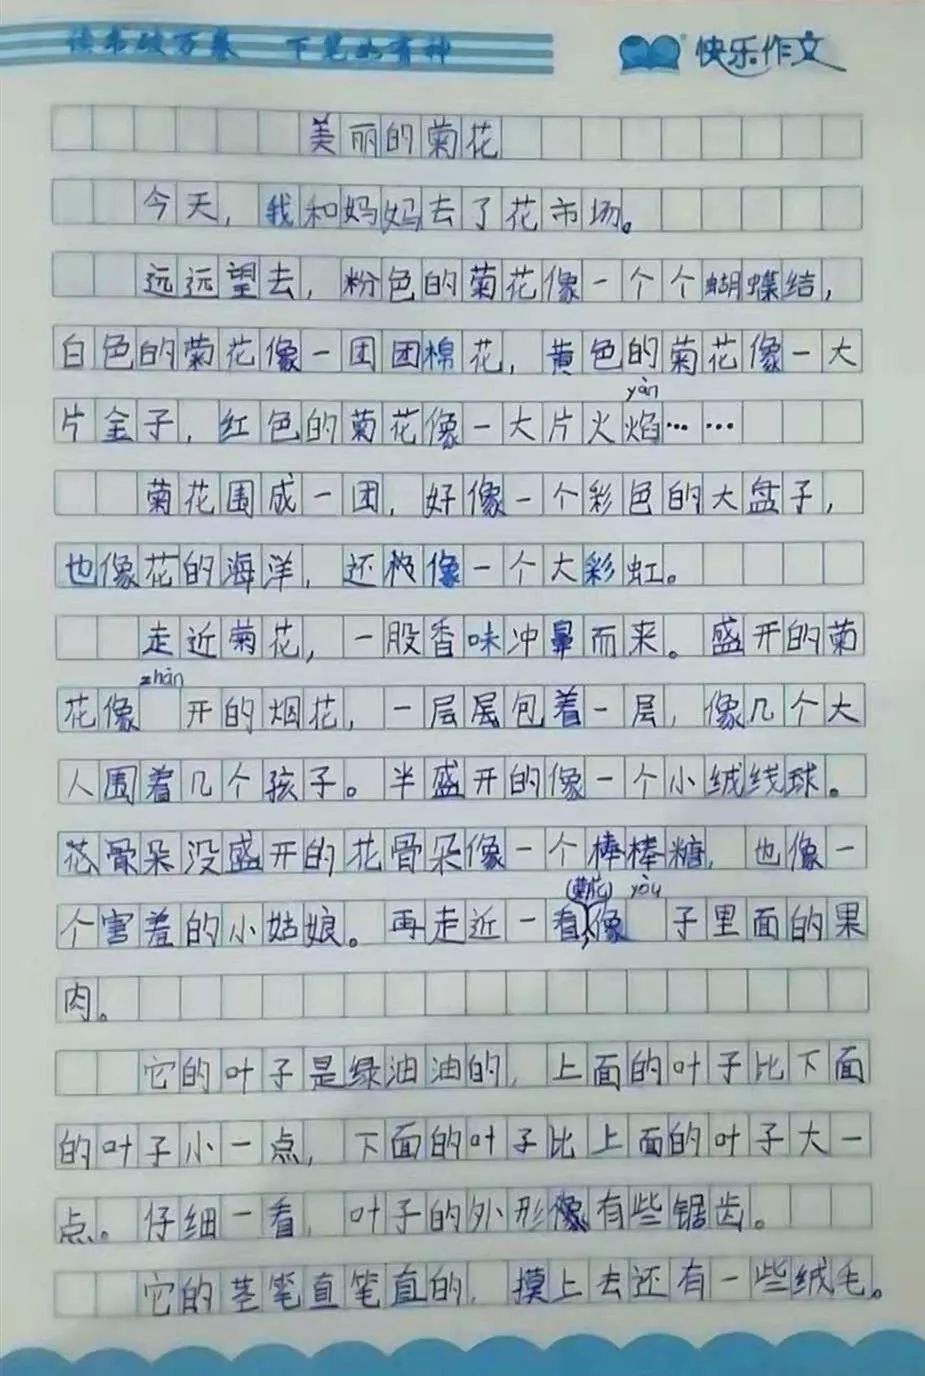 读书破万卷 下笔如有神
快乐作文
美丽的菊花
今天，我和妈妈去了花市场。
远远望去，粉色的菊花像一个个蝴蝶结，
白色的菊花像一团团棉花，黄色的菊花像一大
yàn
片金子，红色的菊花像一大片火焰……
菊花围成一团，好像一个彩色的大盆子，
也像花的海洋，还极像一个大彩虹。
走近菊花，一股香味冲鼻而来。盛开的菊
zhàn
花像 开的烟花，一层层包着一层，像几个大
人围着几个孩子。半盛开的像一个小绒线球。
花骨朵没盛开的花骨朵像一个棒棒糖，也像一
(菊花) yòu
个害羞的小姑娘。再走近一看，像 子里面的果
肉。
它的叶子是绿油油的，上面的叶子比下面
的叶子小一点，下面的叶子比上面的叶子大一
点。仔细一看，叶子的外形像有些锯齿。
它的茎笔直笔直的，摸上去还有一些绒毛。